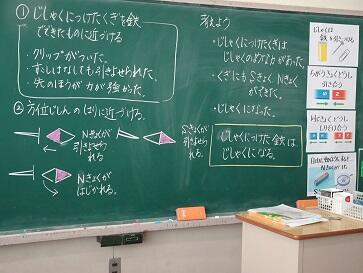 ① じしゃくにつけたくぎを鉄
でできたものに近づける
・クリップがついた。
・すこしはなしても引きよせられた。
・先のほうが力が強かった。
② 方位じしんのはりに近づける。
Nきょくが
引きよせら
れる。
Sきょくが
引きよせ
られる。
Nきょくが
はじかれる。
・じしゃくにつけたくぎは
じしゃくのような力があった。
・くぎにもSきょくNきょく
ができた。
・じしゃくになった。
じしゃくにつけた鉄は
じしゃくになる。
じしゃくは
鉄を引きつける
ちがうきょくどうし
引き合う